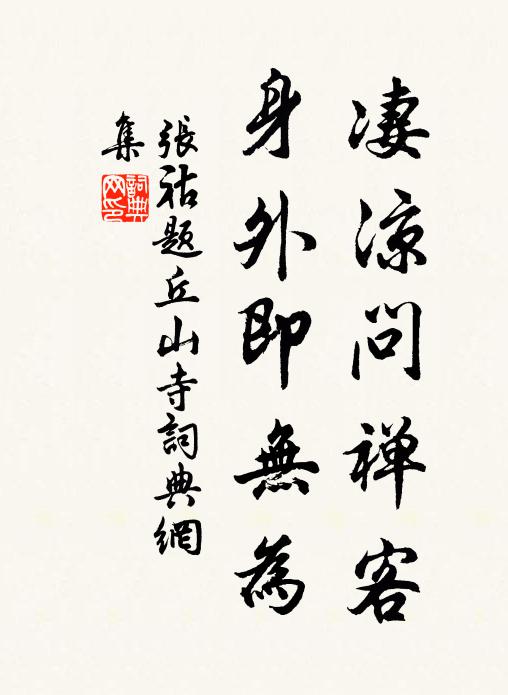 凄凉問禅客
身外即無為
張祜題丘山寺詞典網
集
詞典
网印